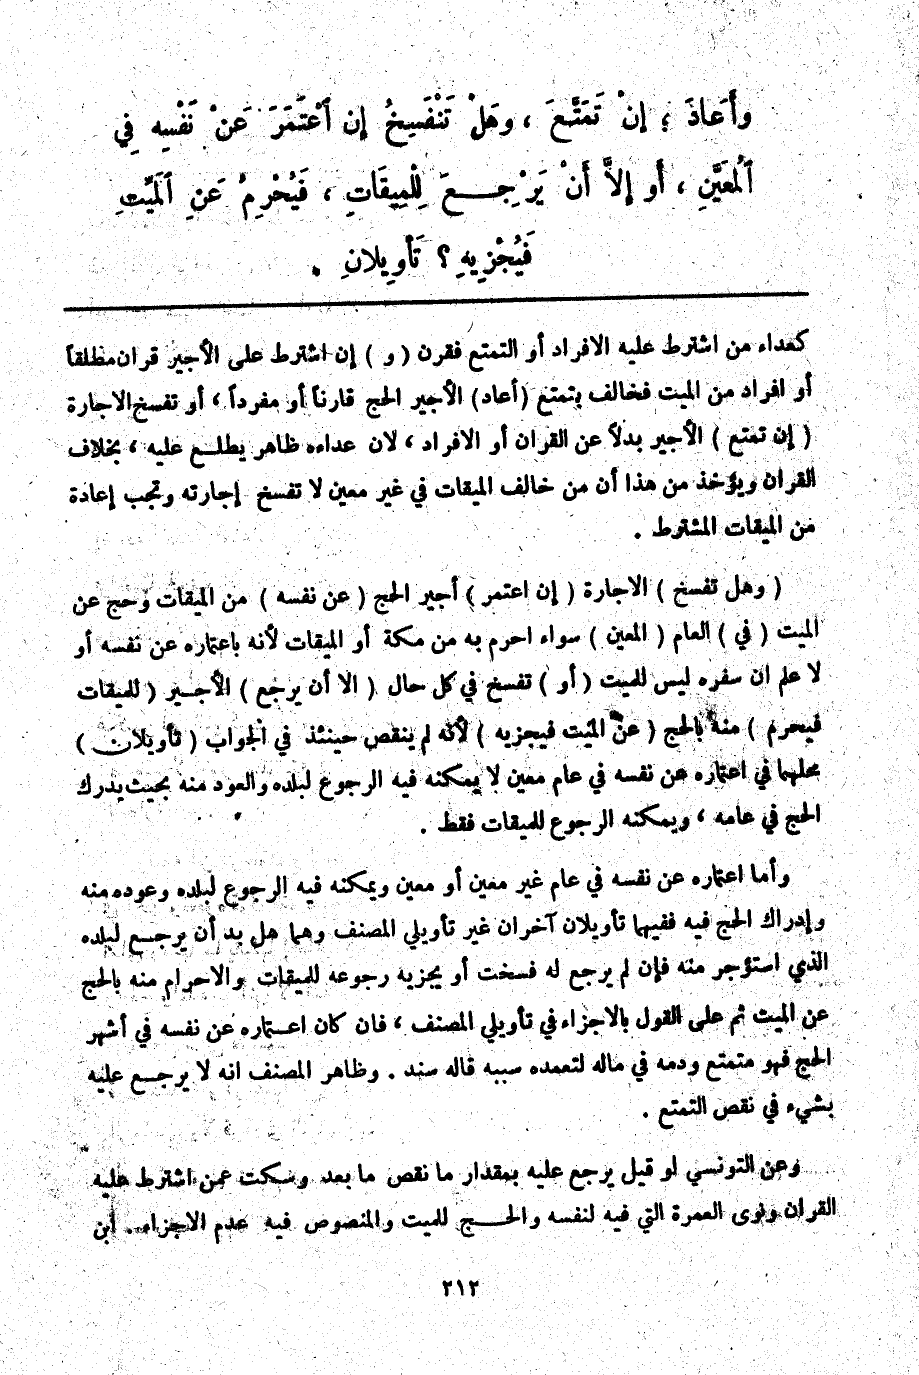 وأَعَادَ ؛ إِنْ تَمَتَّعَ ، وَهَلْ تَنْفَسِخُ إِنِ ٱعْتَمَرَ عَنْ نَفْسِهِ فِي
ٱلْمُعَيَّنِ ، أَو إِلاَّ أَنْ يَرْجِعَ لِلْمِيقَاتِ ، فَيُحْرِمُ عَنِ ٱلْمَيِّتِ
فَيُجْزِيهِ ؟ تَأْوِيلَانِ .
كعداء من اشترط عليه الافراد أو التمتع فقرن ( و ) إن اشترط على الأجير قران مطلقاً
أو افراد من الميت فخالف بتمتع (أعاد) الأجير الحج قارناً أو مفرداً ، أو تفسخ الاجارة
( إن تمتع ) الأجير بدلاً عن القران أو الافراد ، لان عداءه ظاهر يطلع عليه ، بخلاف
القران ويؤخذ من هذا أن من خالف الميقات في غير معين لا تفسخ إجارته وتجب إعادة
من الميقات المشترط .
( وهل تفسخ ) الاجارة ( إن اعتمر ) أجير الحج ( عن نفسه ) من الميقات وحج عن
الميت ( في ) العام ( المعين ) سواء احرم به من مكة أو الميقات لأنه باعتماره عن نفسه أو
لا علم ان سفره ليس للميت ( أو ) تفسخ في كل حال ( الا أن يرجع ) الأجير ( للميقات
فيحرم ) منه بالحج ( عن الميت فيجزيه ) لأنه لم ينقص حينئذ في الجواب ( تأويلان )
محلهما في اعتماره عن نفسه في عام معين لا يمكنه فيه الرجوع لبلده والعود منه بحيث يدرك
الحج في عامه ، ويمكنه الرجوع للميقات فقط .
وأما اعتماره عن نفسه في عام غير معين أو معين ويمكنه فيه الرجوع لبلده وعوده منه
وإدراك الحج فيه ففيهما تأويلان آخران غير تأويلي المصنف وهما هل بد أن يرجع لبلده
الذي استؤجر منه فإن لم يرجع له فسخت أو يجزيه رجوعه للميقات والاحرام منه بالحج
عن الميت ثم على القول بالاجزاء في تأويلي المصنف ، فان كان اعتماره عن نفسه في أشهر
الحج فهو متمتع ودمه في ماله لتعمده سببه قاله سند . وظاهر المصنف انه لا يرجع عليه
بشيء في نقص التمتع .
وعن التونسي لو قيل يرجع عليه بمقدار ما نقص ما بعد وسكت عمن اشترط عليه
القران ونوى العمرة التي فيه لنفسه والحج للميت والمنصوص فيه عدم الاجزاء . ابن
٢١٢